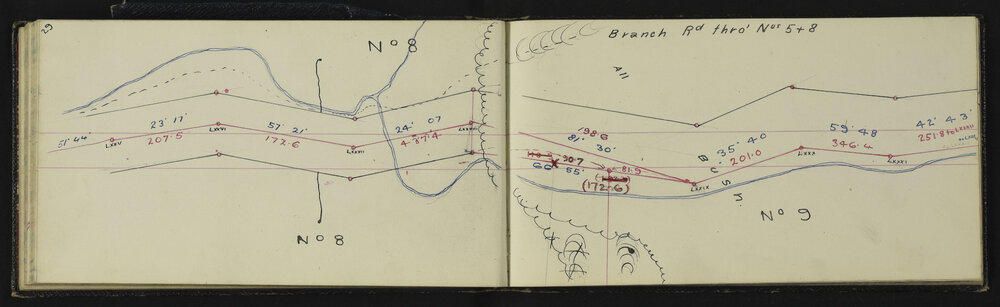 29
No 8
51° 44'
LXXV
23° 17'
207.5
LXXVI
57° 21'
172.6
LXXVII
24° 07
487.4
LXXVIII
No 8
Branch Rd thro' Nos 5+8
All
Bush.
198.6
81° 30'
30.7
66° 55'
81.9
(172.6)
LXXIX
35° 40
201.0
LXXX
59° 48
346.4
LXXXI
42° 43'
251.8 to LXXXII
No 9